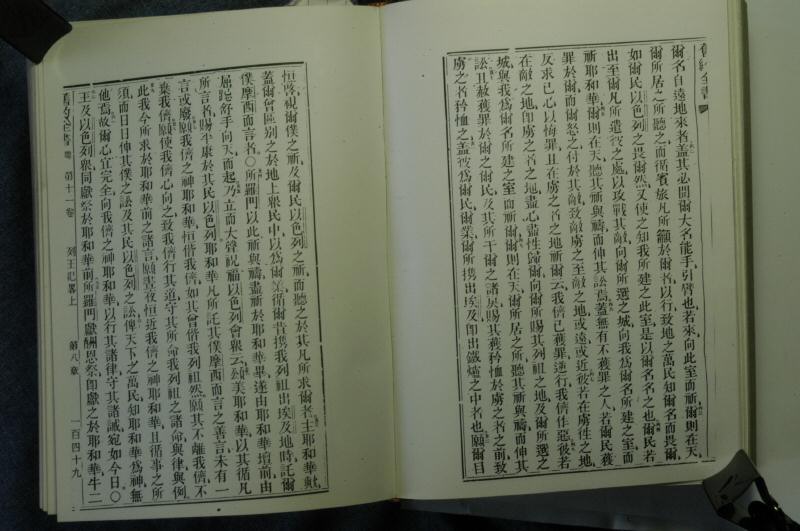 舊約全書
爾名自遠地來者蓋其必聞爾大名能手引臂也若來向此室而祈爾則在天
爾所居之所聽之而循賓旅凡所籲於爾者以行致地之萬民知爾名而畏爾
如爾民以色列之畏爾然又使之知我所建之此室是以爾名名之也爾民若
出至爾凡所遣彼之處以攻戰其敵向爾所選之城向我爲爾名所建之室而
祈耶和華爾則在天聽其祈與禱而伸其訟焉蓋無有不獲罪之人若爾民獲
罪於爾而爾怒之付於其敵致敵虜之至敵之地或遠或近彼若在虜徃之地
反求己心以悔罪且在虜之者之地祈爾云我儕已獲罪逆行我儕作惡彼若
在敵之地即虜之者之地盡心盡性歸爾向爾所賜其列祖之地及爾所選之
城與我爲爾名所建之室而祈爾爾則在天爾所居之所聽其祈與禱而伸其
訟且赦獲罪於爾之爾民及其所干爾之諸戾賜其獲矜恤於虜之者之前致
虜之者矜恤之蓋彼爲爾民爾業爾所携出埃及即出鐵爐之中者也願爾目
恒啓視爾僕之祈及爾民以色列之祈而聽之於其凡所求爾者主耶和華歟
蓋爾會區別之於地上衆民中以爲爾業循爾昔携我列祖出埃及地時託爾
僕摩西而言者〇所羅門以此祈與禱盡祈於耶和華畢遂由耶和華壇前由
屈跪舒手向天而起乃立而大聲祝福以色列會衆云頌美耶和華以其循凡
所言者賜平康於其民以色列耶和華凡所託其僕摩西而言之善言未有一
言或廢願我儕之神耶和華恒偕我儕如其曾偕我列祖然願其不離我儕不
棄我儕願使我儕心向之致我儕行其道守其所命我列祖之諸命與律與例
此我今所求於耶和華前之諸言願晝夜恒近我儕之神耶和華且循事之所
須而日日伸其僕之訟及其民以色列之訟俾天下之萬民知耶和華爲神無
他焉故爾心宜完全向我儕之神耶和華以行其諸律守其諸誡宛如今日〇
王及以色列衆同獻祭於耶和華前所羅門獻酬恩祭即獻之於耶和華牛二
舊約全書 第十一卷 列王紀畧上 第八章 一百四十九